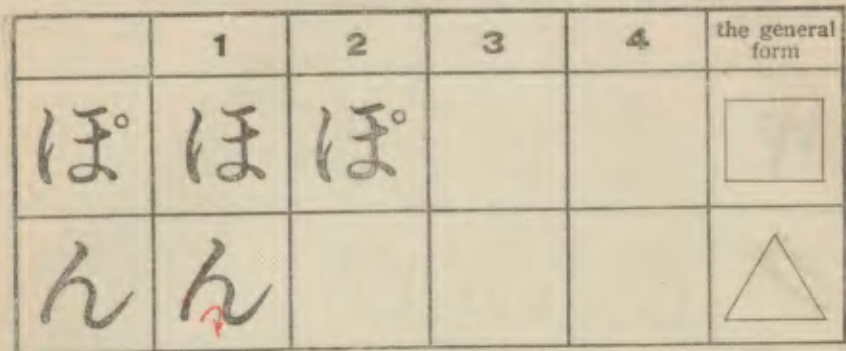 1 2 3 4 the general
form
ぽ ほ ぽ
ん ん